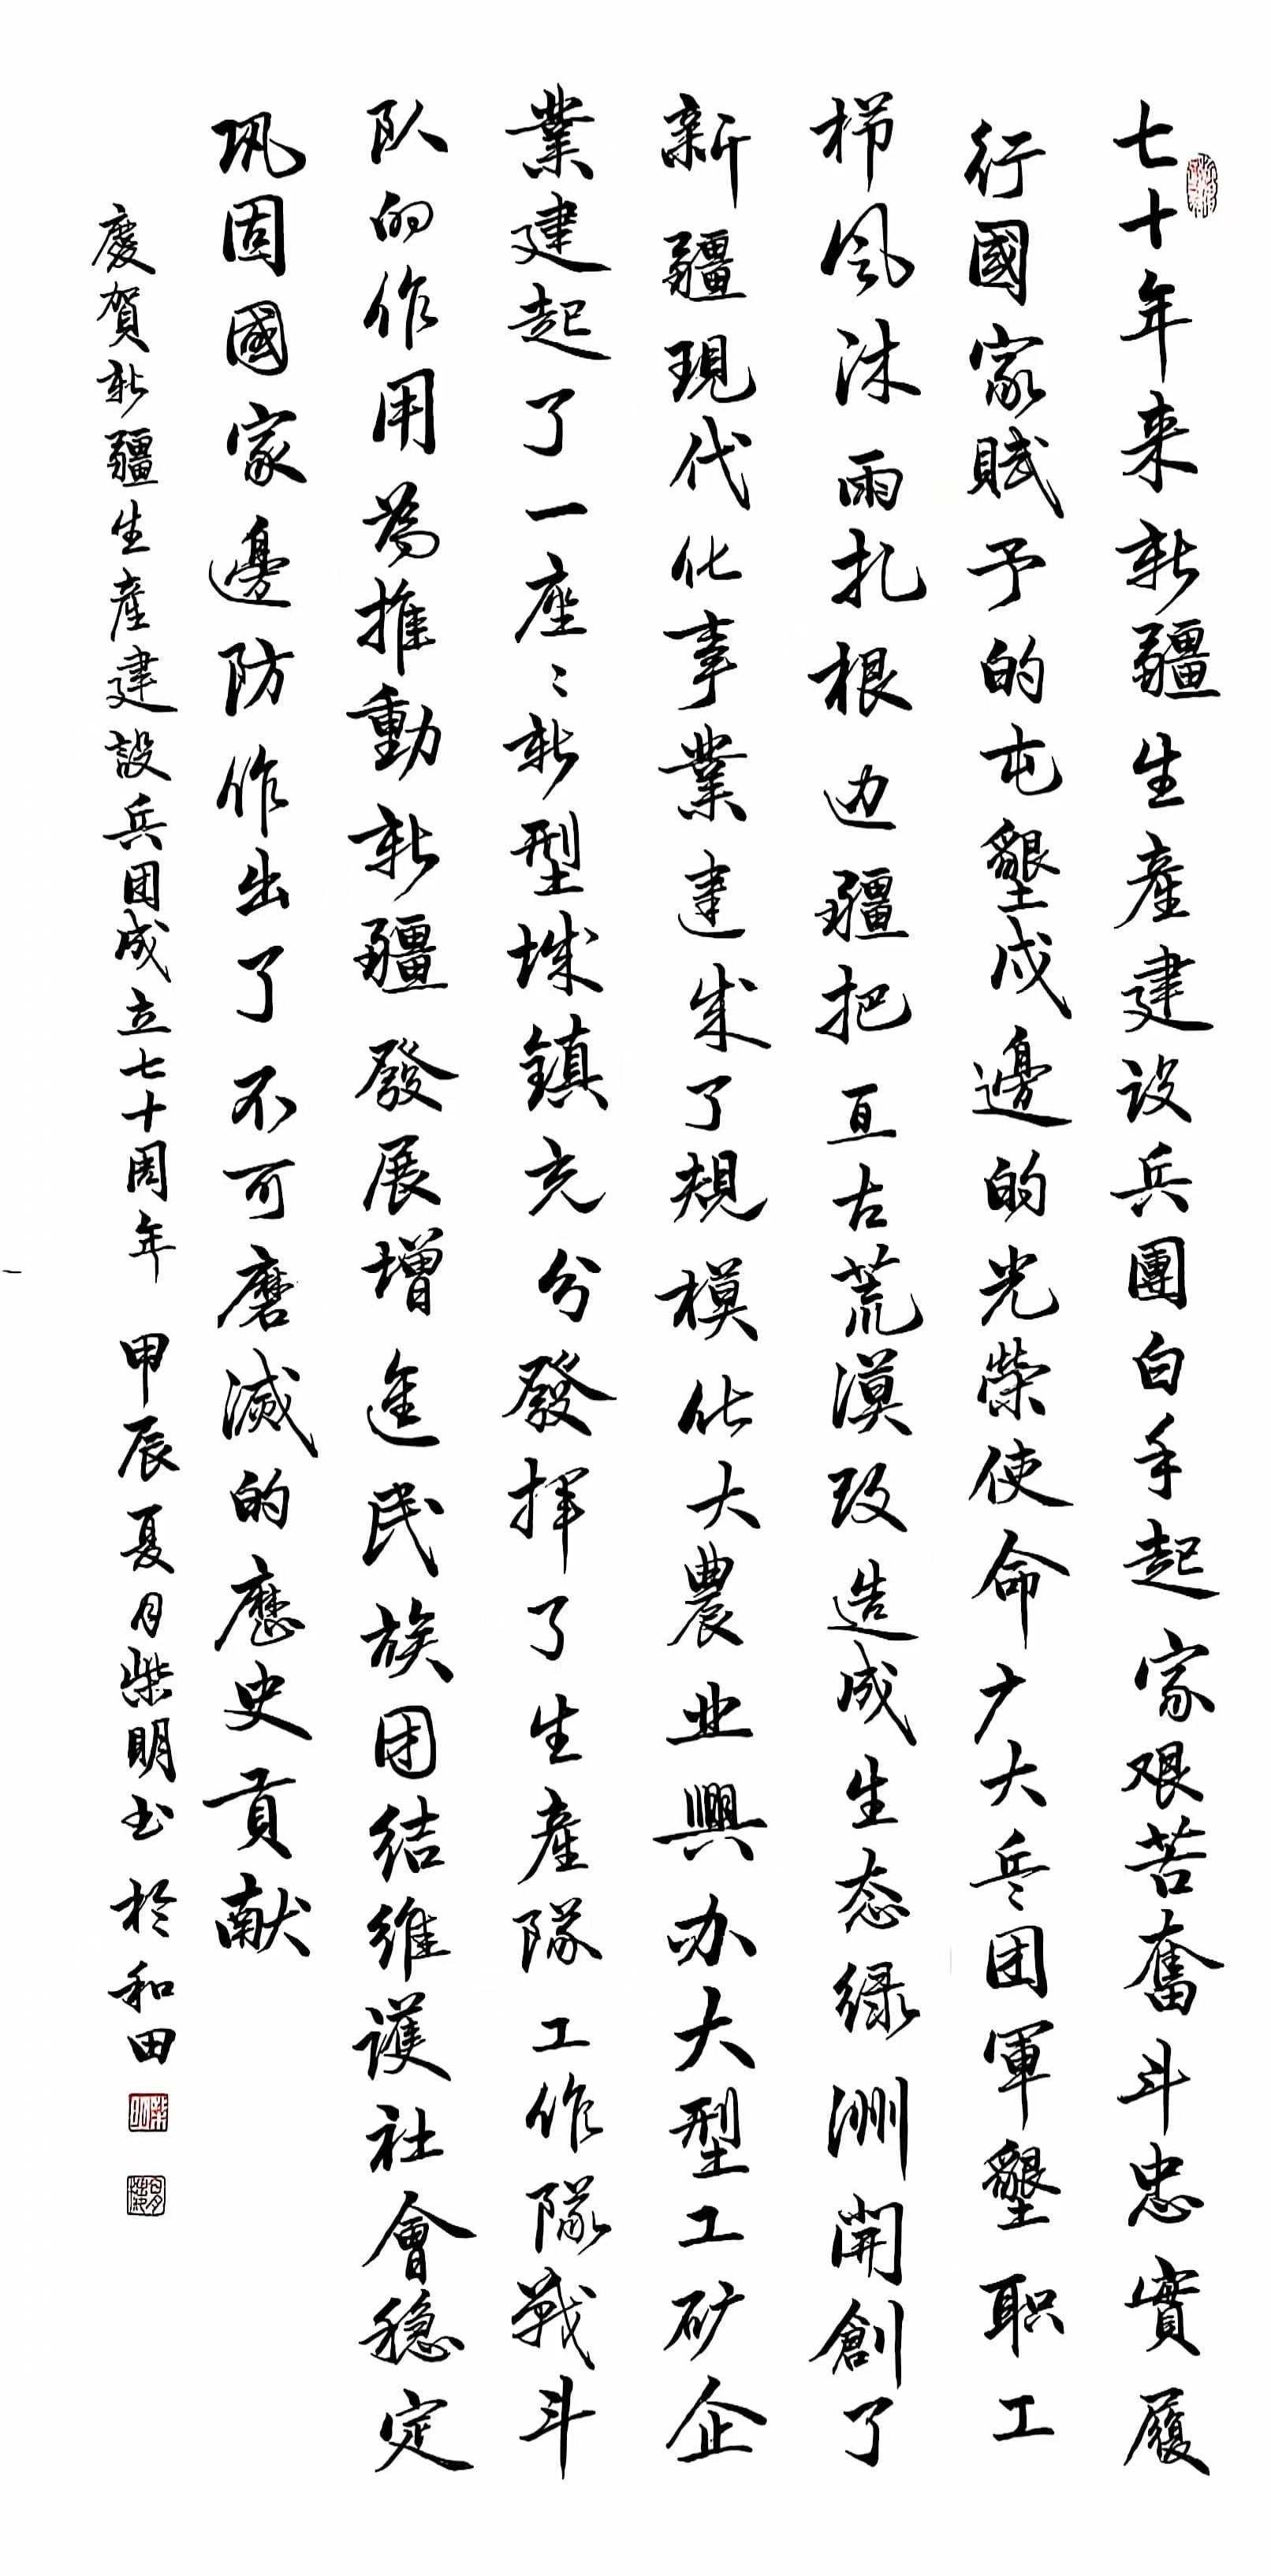 七十年来新疆生產建设兵團白手起家艰苦奮斗忠實履
行國家賦予的屯墾戍邊的光榮使命广大兵团軍墾职工
栉风沐雨扎根边疆把亘古荒漠改造成生态绿洲開創了
新疆現代化事業建成了規模化大農业興办大型工矿企
業建起了一座〻新型城鎮充分發揮了生產隊工作隊戰斗
队的作用為推動新疆發展增進民族团结維護社會稳定
巩固國家邊防作出了不可磨滅的歷史貢献
慶賀新疆生產建設兵团成立七十周年 甲辰夏月柴明书於和田